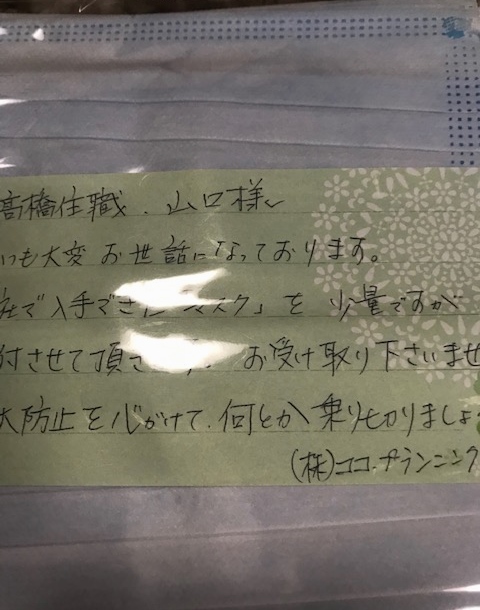 高橋住職. 山口様
いも大変お世話になっております。
で入手でき 「マスク」を少量ですが
付させて頂き お受け取り下さいませ
大防止を心がけて.何とか乗り切りましょ
(株)ココ.プランニング